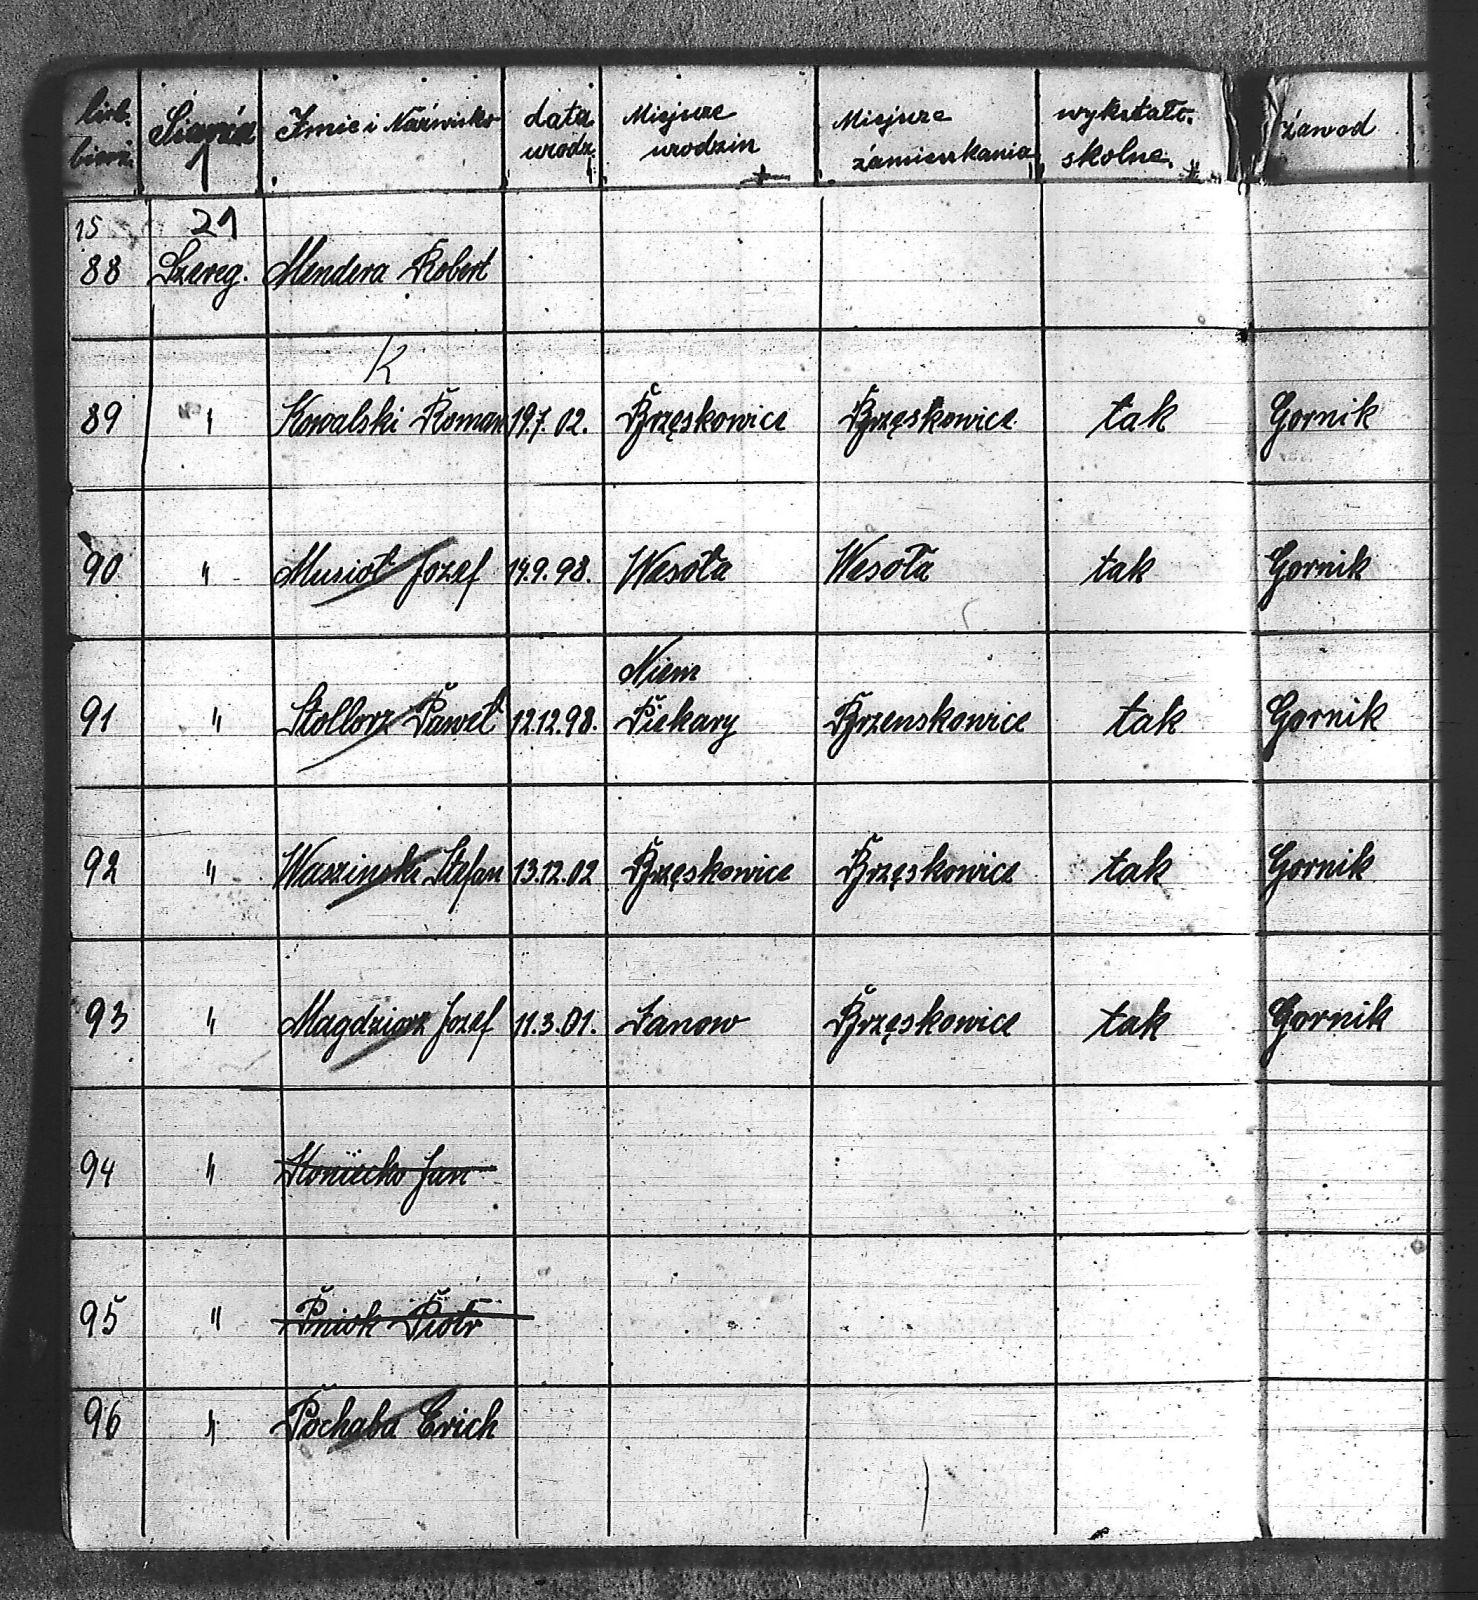 licb. bież. Stopień Imie i Nazwisko data urodz. Miejsce urodzin Miejsce zamieszkania wykształc. skolne. zawod
15 21
88 Szereg. Mendera Robert
K
89 " Kowalski Roman 19.7.02. Brzęskowice Brzęskowice tak Gornik
90 " Musioł Jozef 19.9.98. Wesoła Wesoła tak Gornik
Niem
91 " Stollorz Paweł 12.12.98. Piekary Brzenskowice tak Gornik
92 " Waszinski Stefan 13.12.02 Brzęskowice Brzęskowice tak Gornik
93 " Magdziorz Jozef 11.3.01. Janow Brzęskowice tak Gornik
94 " Koniecko Jan
95 " Pniok Piotr
96 " Pochaba Erich